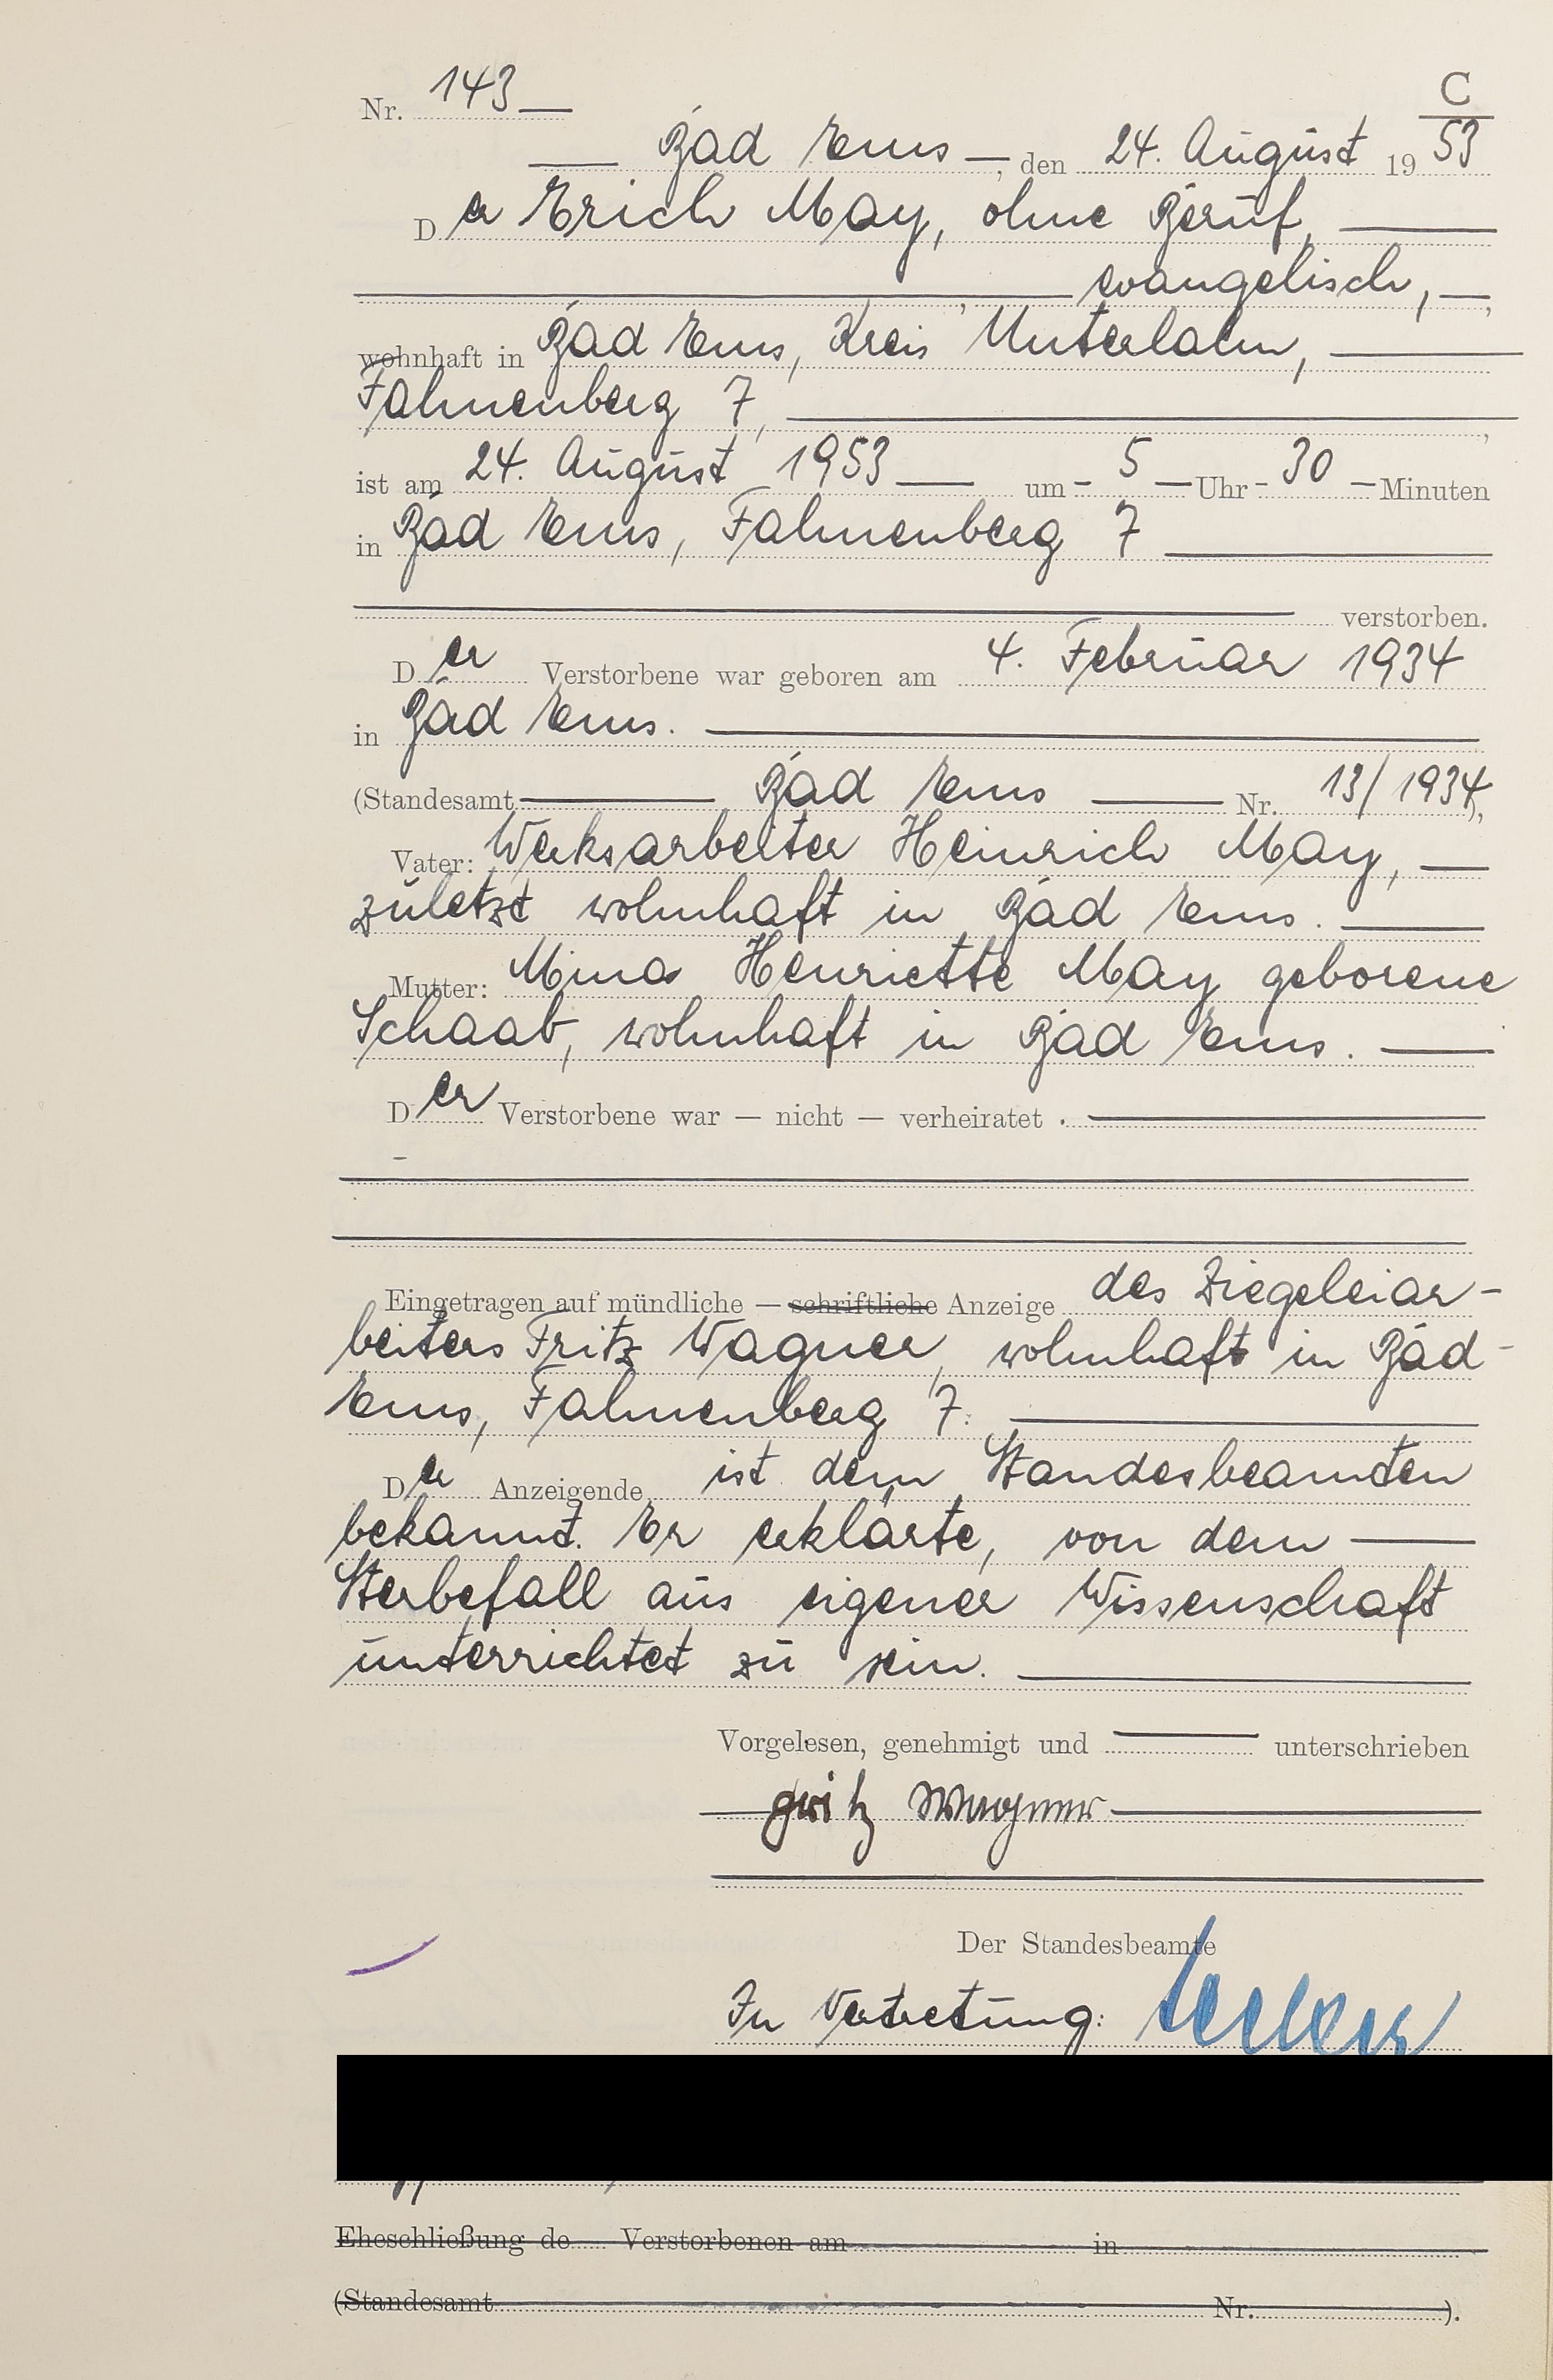 Nr. 143
C
Bad Ems, den 24. August 1953
Der Erich May, ohne Beruf,
evangelisch,
wohnhaft in Bad Ems, Kreis Unterlahn,
Fahnenberg 7,
ist am 24. August 1953 um - 5 - Uhr - 30 - Minuten
in Bad Ems, Fahnenberg 7
verstorben.
Der Verstorbene war geboren am 4. Februar 1934
in Bad Ems.
(Standesamt Bad Ems Nr. 13/1934),
Vater: Werksarbeiter Heinrich May,
zuletzt wohnhaft in Bad Ems.
Mutter: Mina Henriette May geborene
Schaab, wohnhaft in Bad Ems.
Der Verstorbene war — nicht — verheiratet.
Eingetragen auf mündliche — schriftliche Anzeige des Ziegeleiar-
beiters Fritz Wagner, wohnhaft in Bad-
Ems, Fahnenberg 7.
Der Anzeigende ist dem Standesbeamten
bekannt. Er erklärte, von dem
Sterbefall aus eigener Wissenschaft
unterrichtet zu sein.
Vorgelesen, genehmigt und unterschrieben
Fritz Wagner
Der Standesbeamte
In Vertretung:
Eheschließung de Verstorbenen am in
(Standesamt Nr. ).